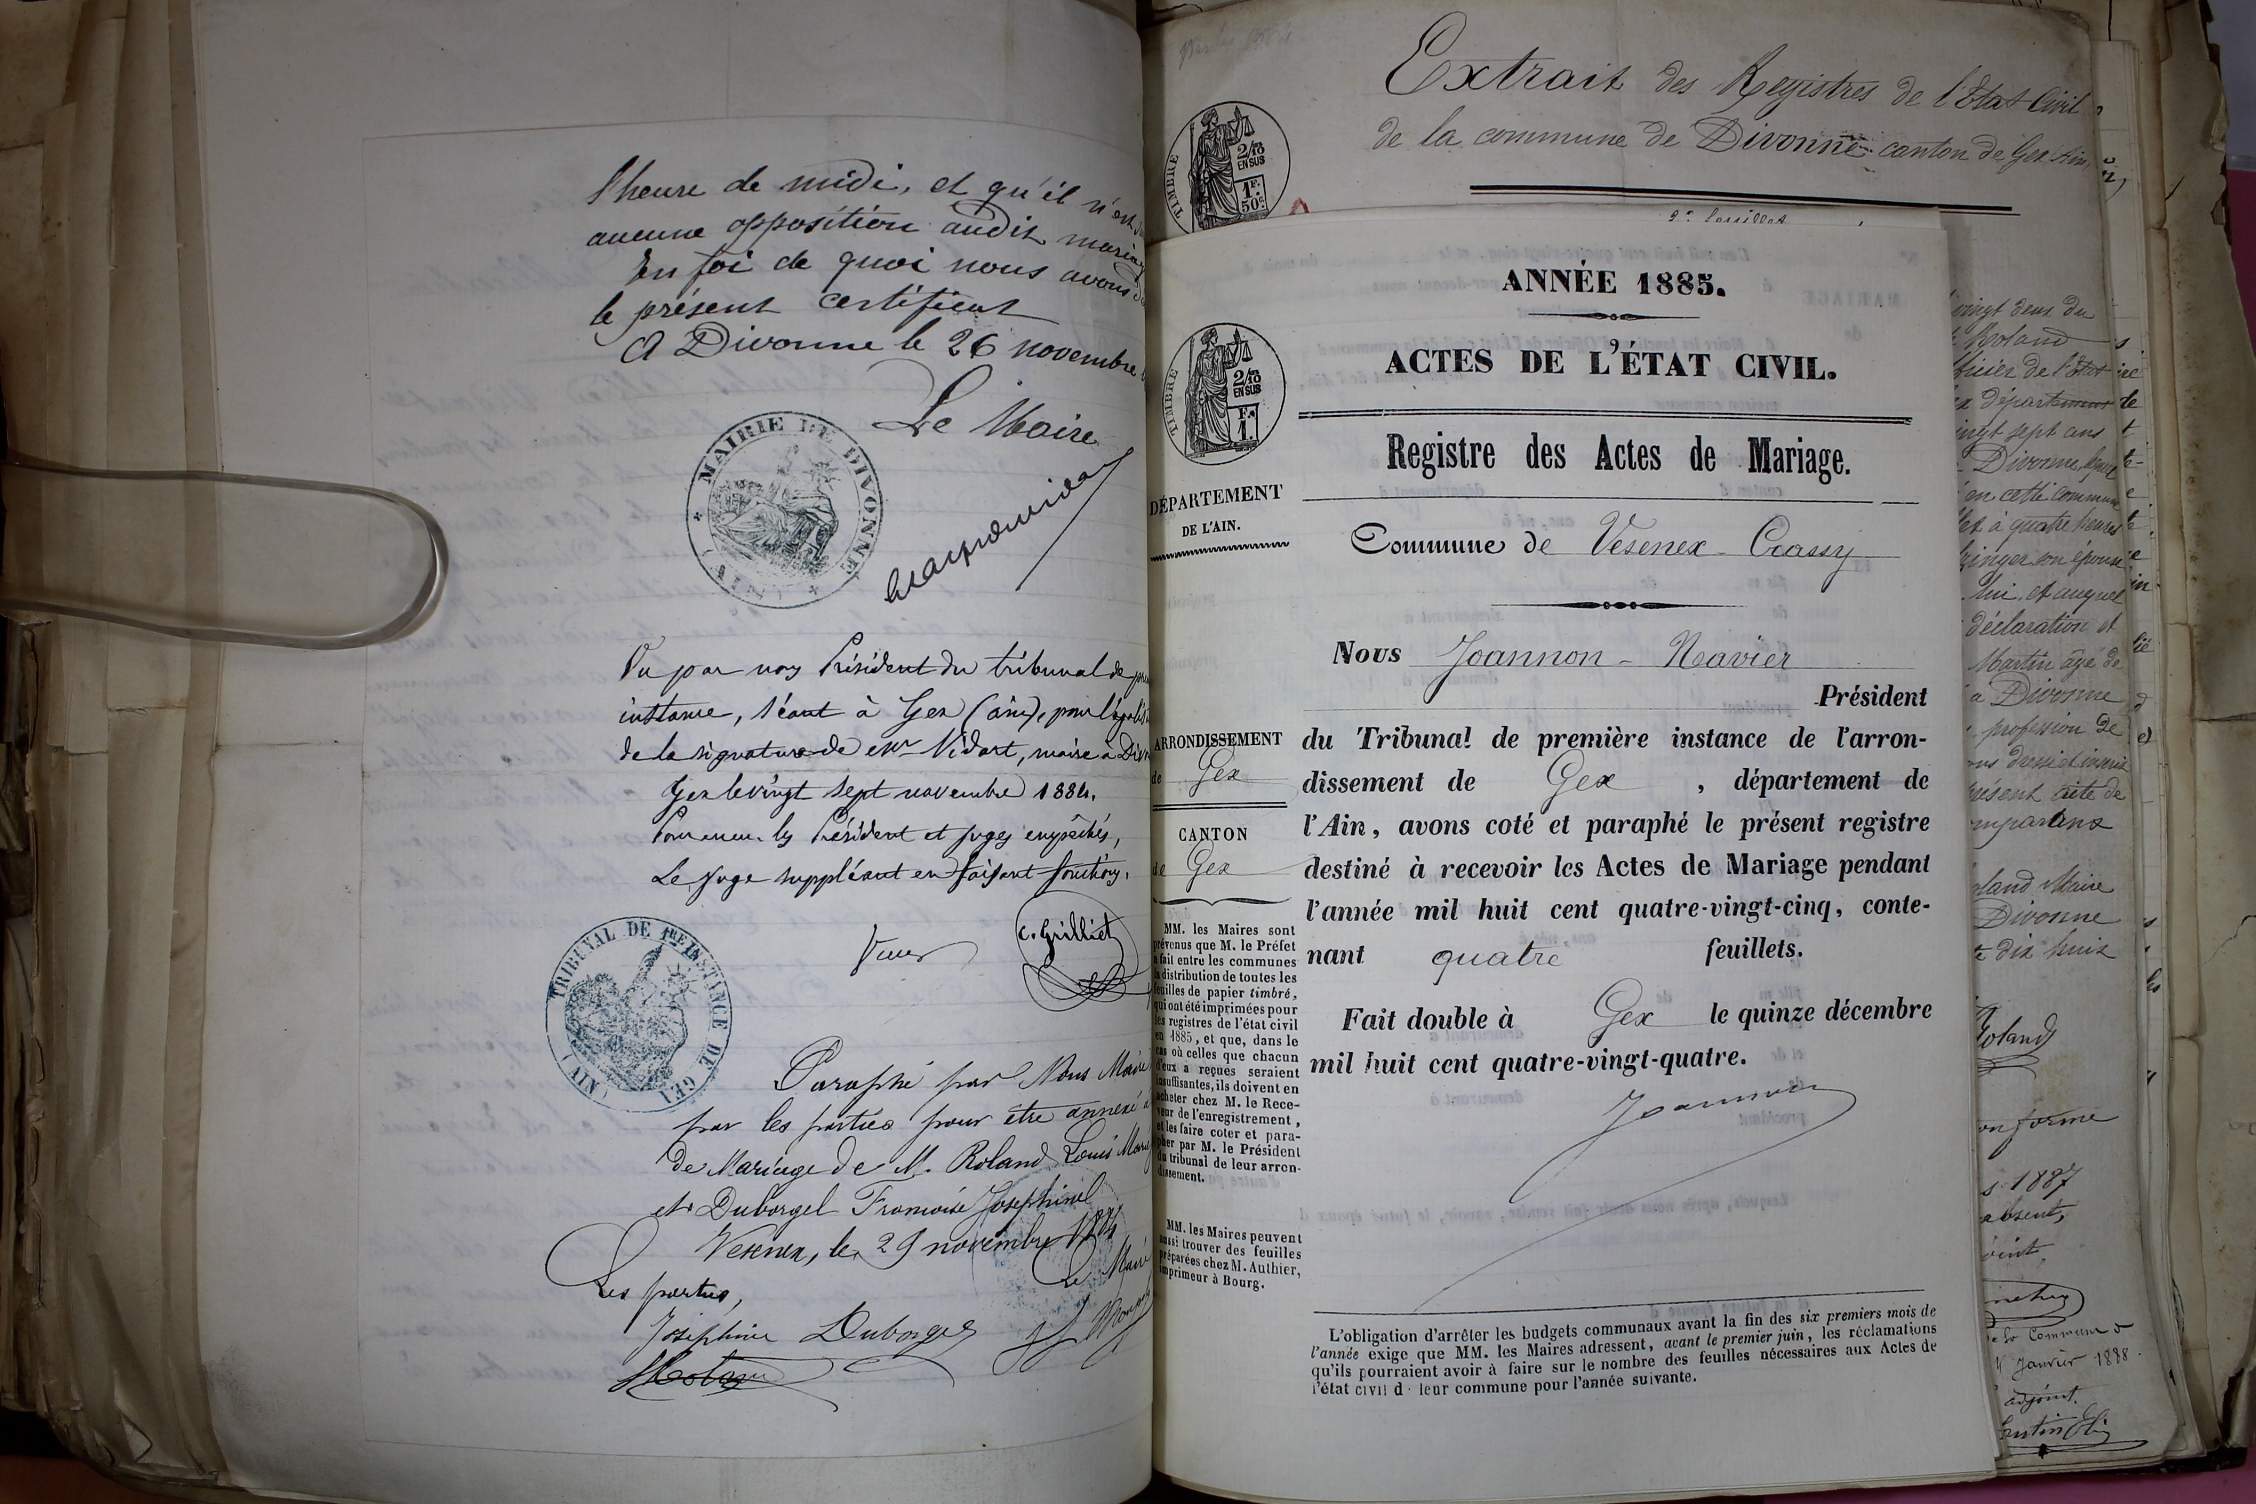 l'heure de midi, et qu'il n'est
aucune opposition audit mariag
En foi de quoi nous avons
le présent certificat
A Divonne le 26 novembre
Le Maire
MAIRIE DE DIVONNE
(AIN)
Vu par nous Président du tribunal de
instance, séant à Gex (ain), pour légalis
de la signature de Mr Vidart, maire à Div
Gex le vingt sept novembre 1884.
Pour les Président et juges empêchés,
Le juge suppléant en faisant fonctions,
C. Grilliet
TRIBUNAL DE 1RE INSTANCE DE GEX
(AIN)
Paraphé par Nous Maire
par les parties pour être annexé
de Mariage de M. Roland Louis Marie
et Duborgel Francoise Josephine
Vesenex, le 29 novembre 1884
Le Maire
Les parties,
Joséphine Duborgel
Extrait des Registres de l'Etat Civil
de la commune de Divonne canton de Gex Ain
TIMBRE
2/10
EN SUS
1F.
50c.
2e feuillet
ANNÉE 1885.
ACTES DE L'ÉTAT CIVIL.
TIMBRE
2/10
EN SUS
F.
1.
Registre des Actes de Mariage.
DÉPARTEMENT
DE L'AIN.
Commune de Vesenex-Crassy
Nous Joannon-Navier
Président
ARRONDISSEMENT
de Gex
CANTON
de Gex
du Tribunal de première instance de l'arron-
dissement de Gex, département de
l'Ain, avons coté et paraphé le présent registre
destiné à recevoir les Actes de Mariage pendant
l'année mil huit cent quatre-vingt-cinq, conte-
nant quatre feuillets.
Fait double à Gex le quinze décembre
mil huit cent quatre-vingt-quatre.
Joannon
MM. les Maires sont
prévenus que M. le Préfet
a fait entre les communes
la distribution de toutes les
feuilles de papier timbré,
qui ont été imprimées pour
les registres de l'état civil
en 1885, et que, dans le
cas où celles que chacun
d'eux a reçues seraient
insuffisantes, ils doivent en
acheter chez M. le Rece-
veur de l'enregistrement,
et les faire coter et para-
pher par M. le Président
du tribunal de leur arron-
dissement.
MM. les Maires peuvent
aussi trouver des feuilles
préparées chez M. Authier,
imprimeur à Bourg.
L'obligation d'arrêter les budgets communaux avant la fin des six premiers mois de
l'année exige que MM. les Maires adressent, avant le premier juin, les réclamations
qu'ils pourraient avoir à faire sur le nombre des feuilles nécessaires aux Actes de
l'état civil d leur commune pour l'année suivante.
vingt deux du
Roland
ficier de l'Etat
département
ingt sept ans
Divonne
en cette commune
et à quatre heures
son épouse
lui, et auquel
déclaration et
Martin âgé de
à Divonne
profession de
ons dressé et inscrit
présent acte de
omparans
oland Maire
Divonne
dix huit
Roland
onforme
1887
absent,
joint,
la Commune
Janvier 1888
adjoint.